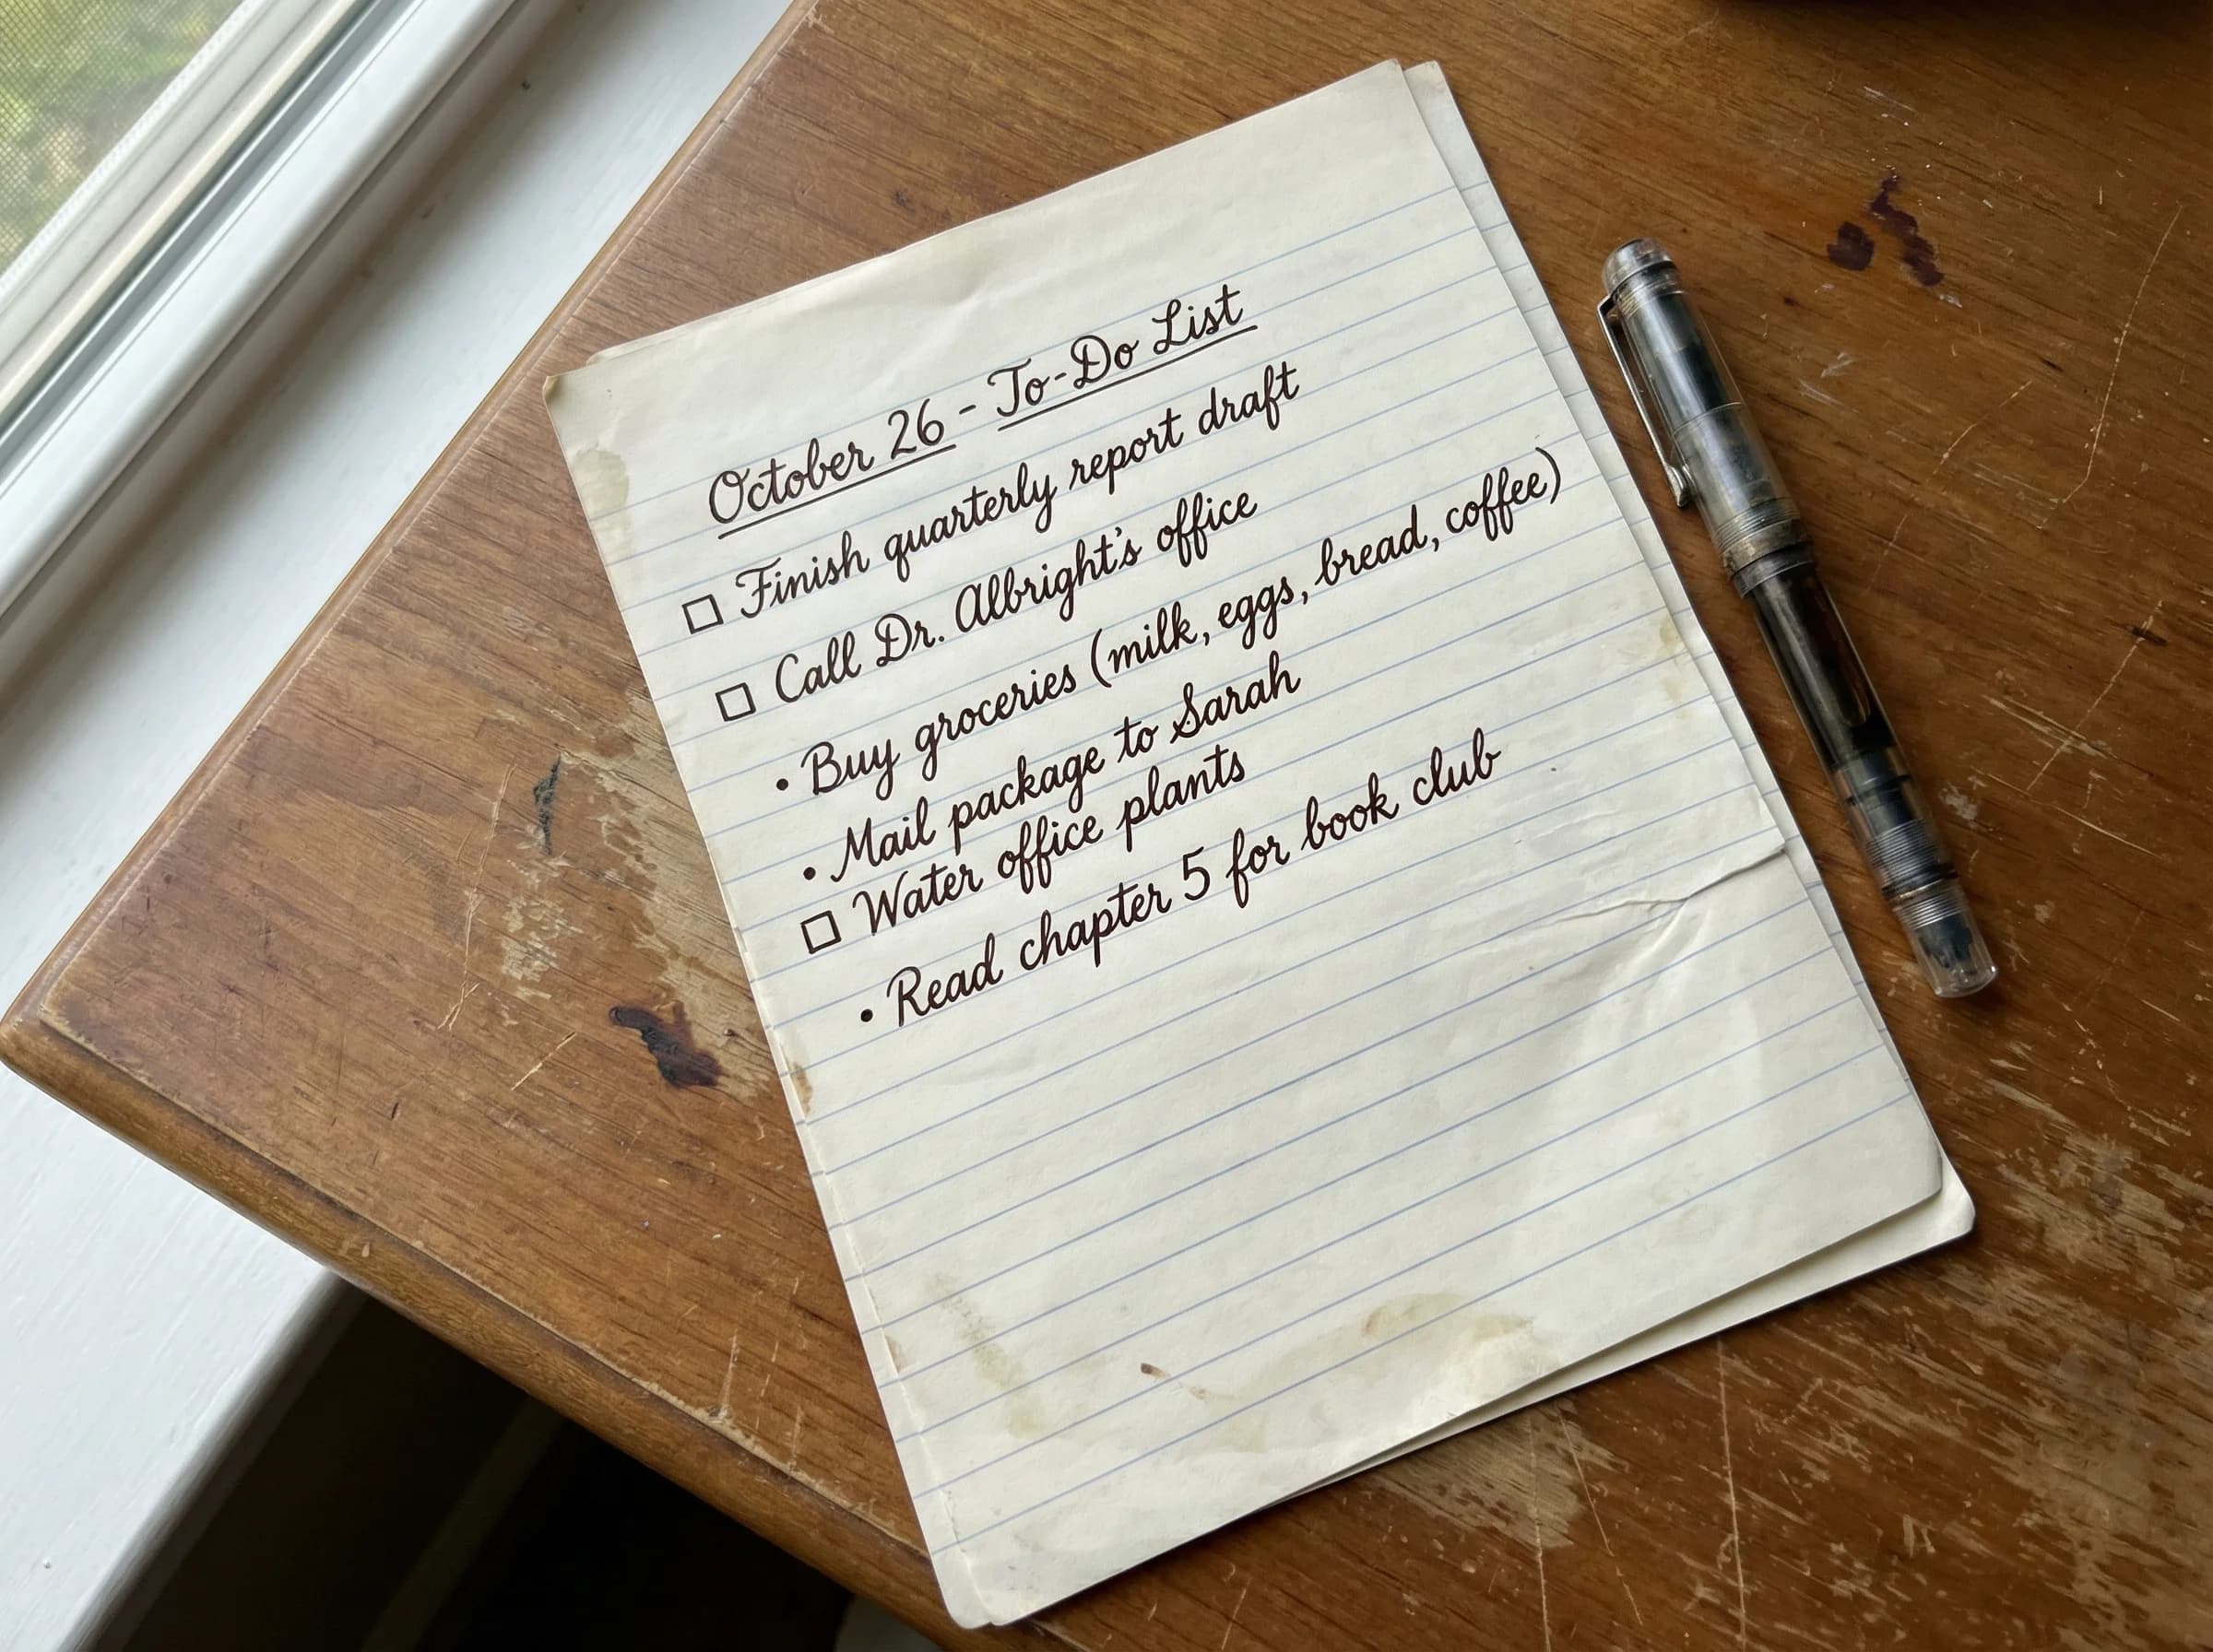 October 26 - To-Do List
☐ Finish quarterly report draft
☐ Call Dr. Albright's office
• Buy groceries (milk, eggs, bread, coffee)
• Mail package to Sarah
☐ Water office plants
• Read chapter 5 for book club